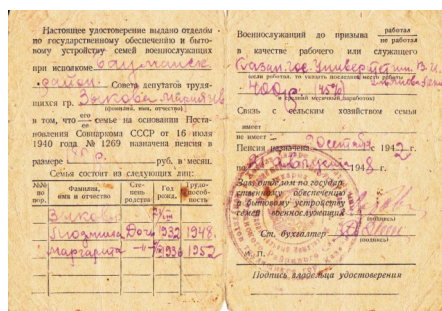 Настоящее удостоверение выдано отделом
по государственному обеспечению и быто-
вому устройству семей военнослужащих
при исполкоме Бауманск.
район. Совета депутатов трудя-
щихся гр. Зыкова
(фамилия, имя, отчество)
в том, что его семье на основании Поста-
ее
новления Совнаркома СССР от 16 июля
1940 года № 1269 назначена пенсия в
размере р. руб. в месяц.
Семья состоит из следующих лиц:
№№ по пор. Фамилия, имя и отчество Сте-пень родства Год рожд. Трудо-способ-ность
Зыкова
Людмила Дочь 1932 1948
Маргарита -"- 1936 1952
Военнослужащий до призыва работал
не работал
в качестве рабочего или служащего
Казан. гос. Университет им. В.И.
(если работал, то указать последнее место работы
400 р.
и средний месячный заработок)
Связь с сельским хозяйством семья
имеет
не имеет
Пенсия назначена с 194 г.
по 1948 г.
Зав. отделом по государ-
ственному обеспечению
и бытовому устройству
семей военнослужащих
(подпись)
Ст. бухгалтер
(подпись)
М. П.
Подпись владельца удостоверения